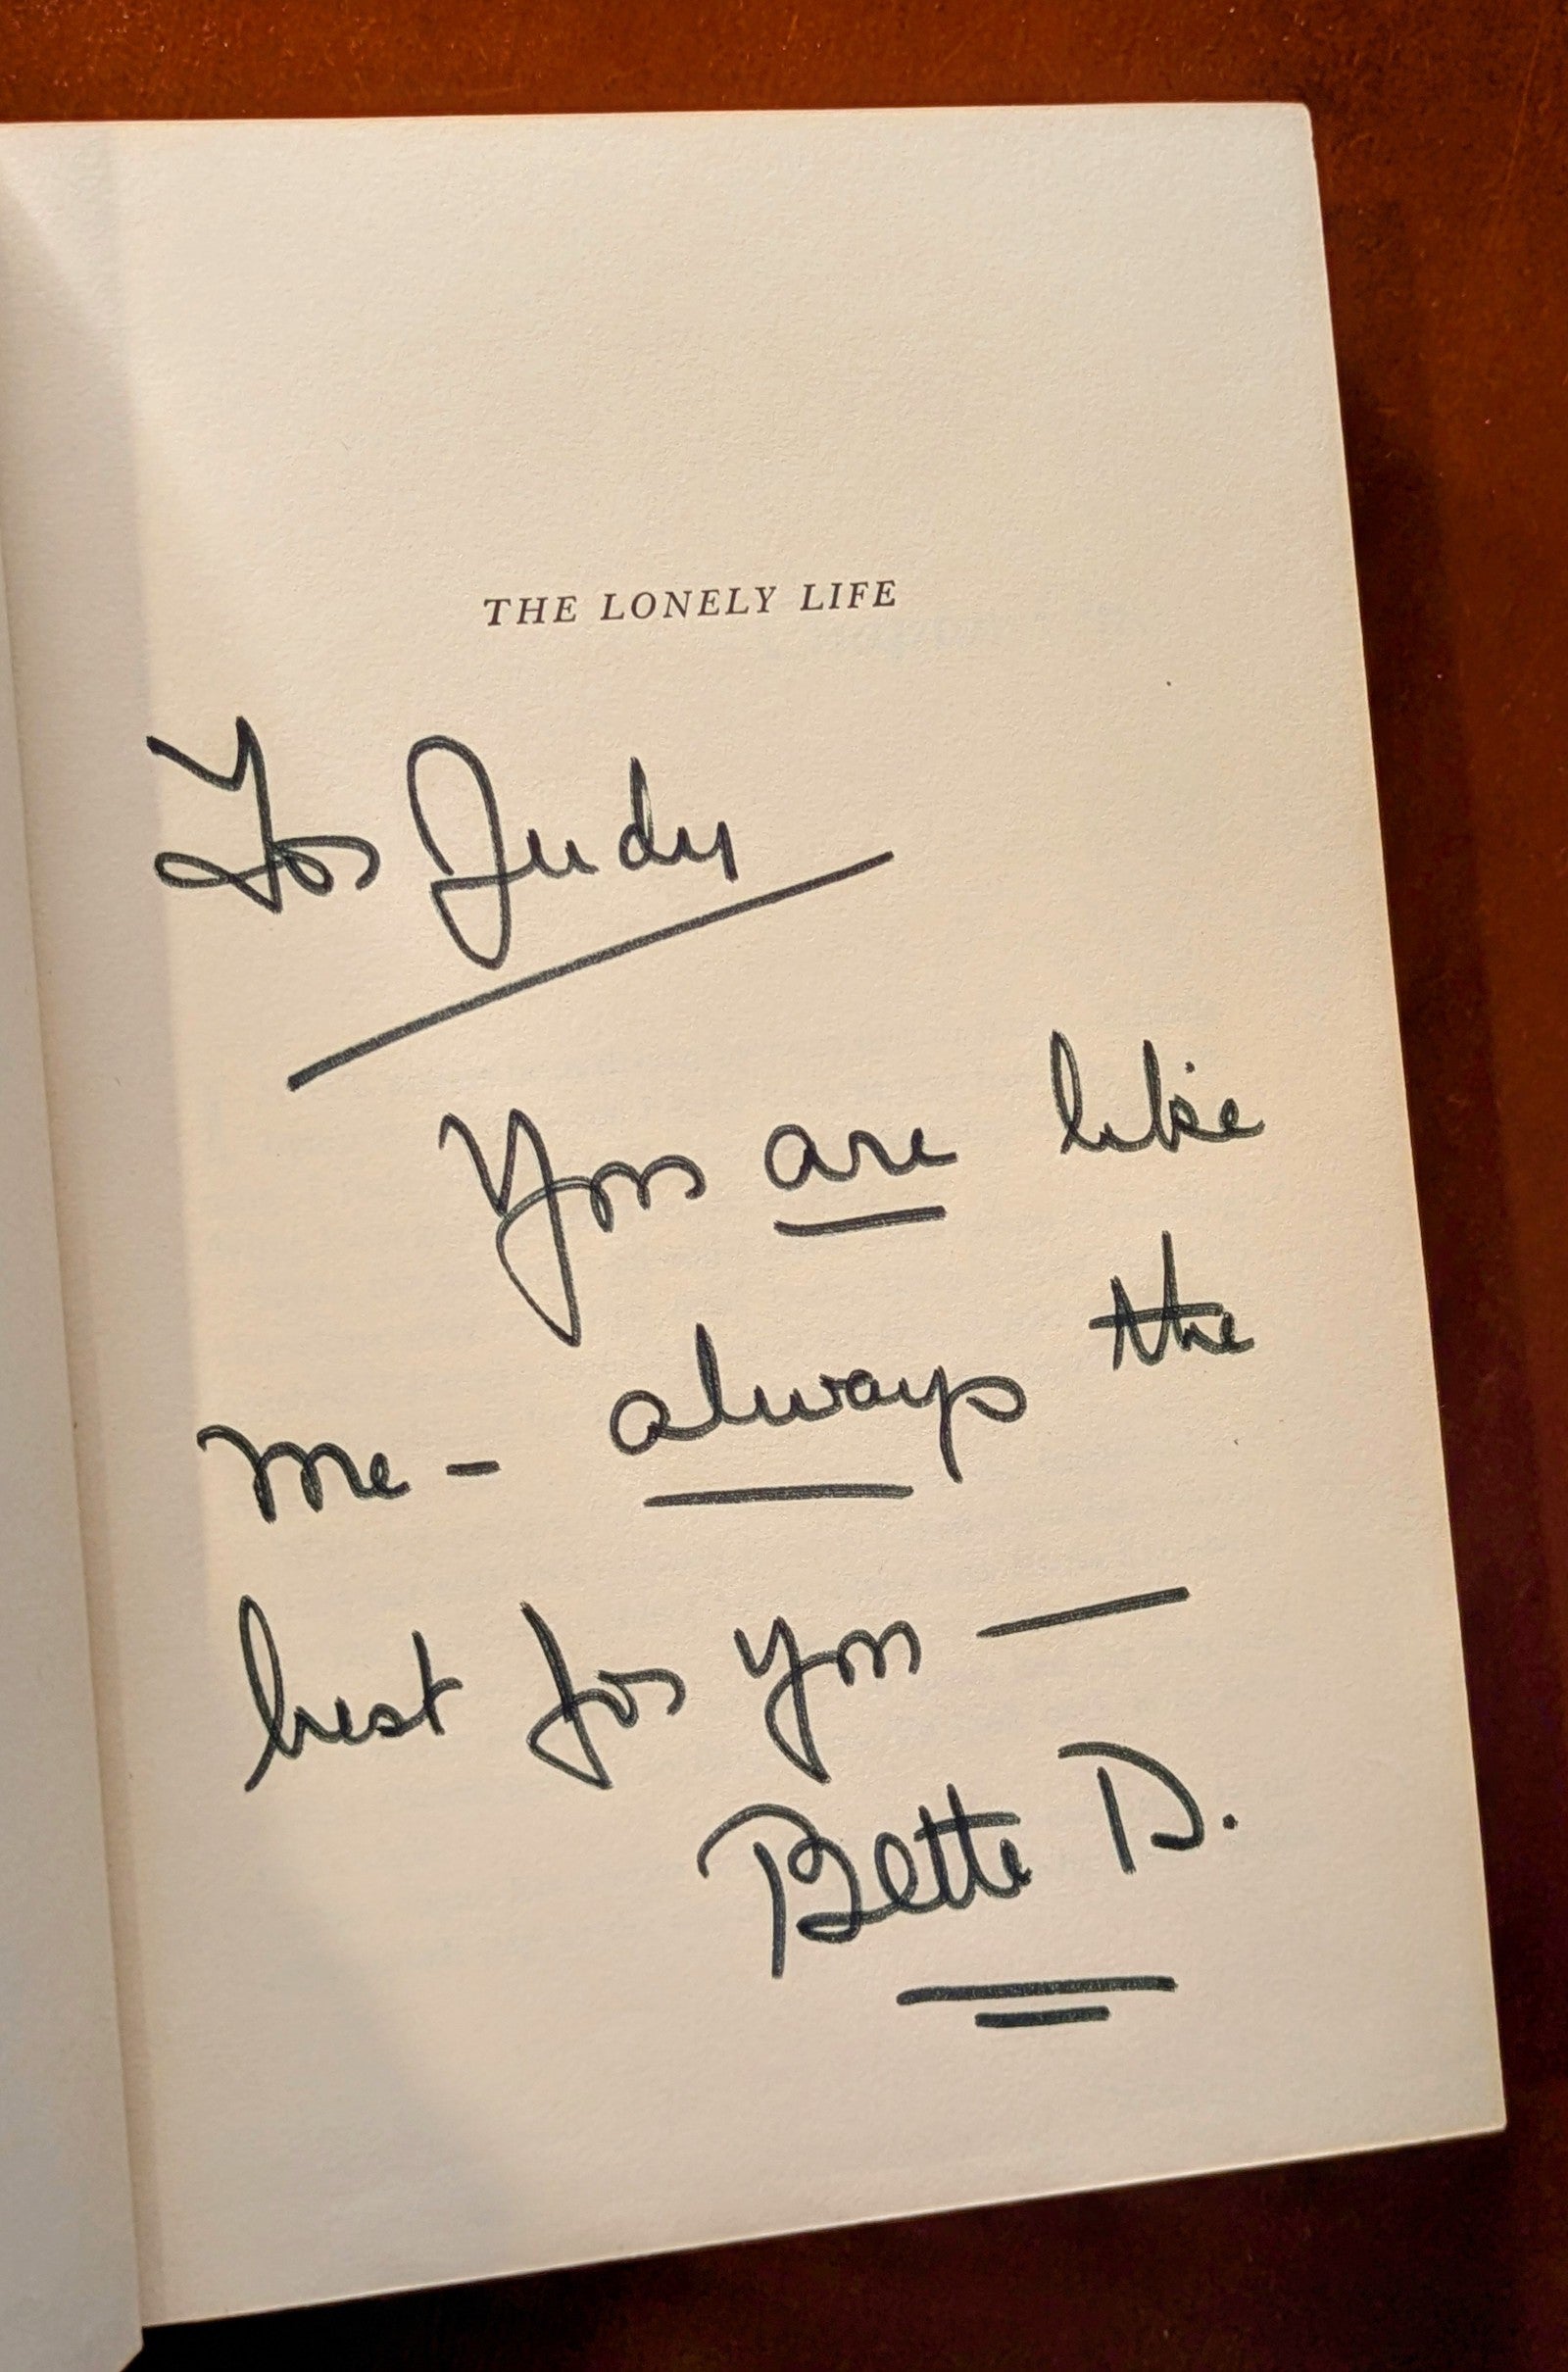 THE LONELY LIFE
For Judy
You are like
me - always the
best for you —
Bette D.